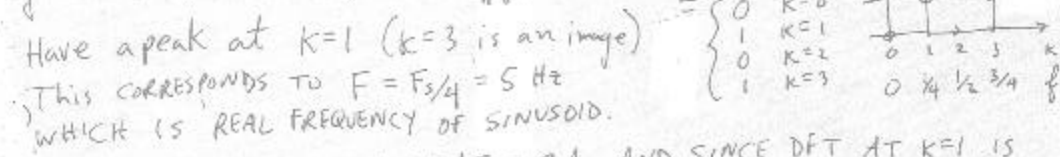 Have a peak at K=1 (K=3 is an image)
This CORRESPONDS TO F = Fs/4 = 5 Hz
WHICH IS REAL FREQUENCY OF SINUSOID.
= { 0 K=0
1 K=1
0 K=2
1 K=3
0 1 2 3 K
0 1/4 1/2 3/4 f
AND SINCE DFT AT K=1 IS